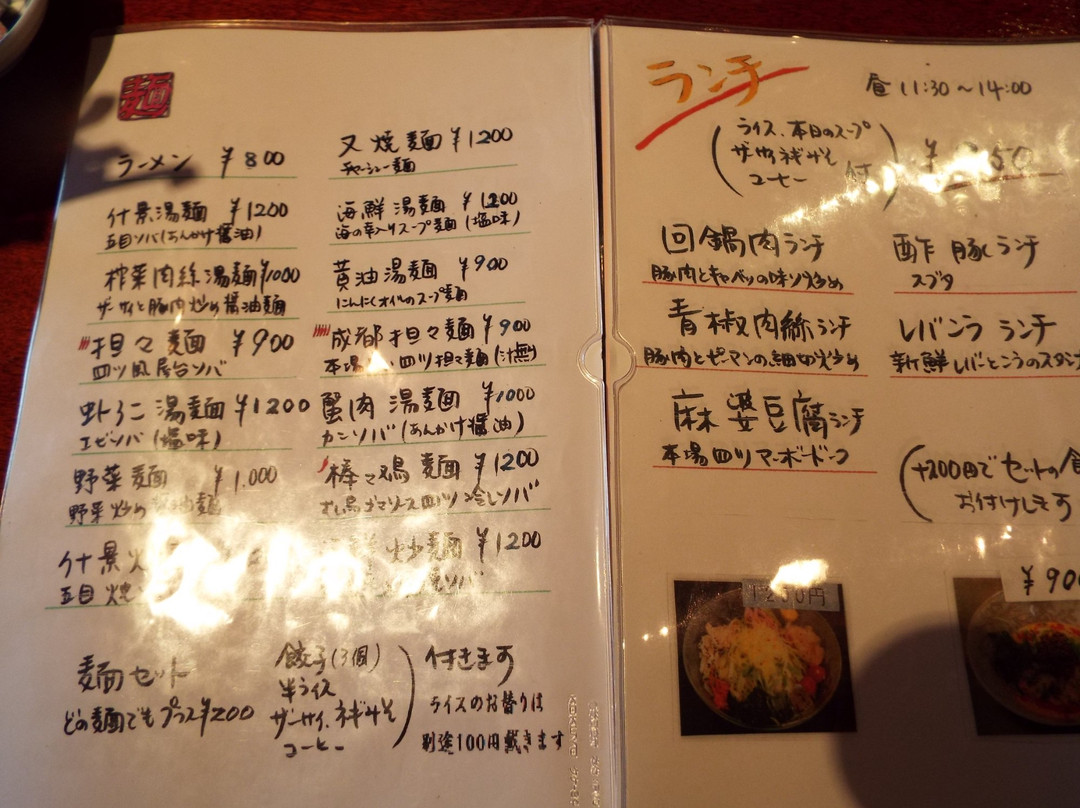 麺
ラーメン ¥800
什景湯麺 ¥1200
五目ソバ(あんかけ醤油)
榨菜肉絲湯麺¥1000
ザーサイと豚肉炒め醤油麺
担々麺 ¥900
四ツ風屋台ソバ
湯麺 ¥1200
エビソバ(塩味)
野菜麺 ¥1.000
野菜炒め
什景
五目
叉焼麺 ¥1200
チャーシュー麺
海鮮湯麺 ¥1200
海の幸入りスープ麺(塩味)
黄油湯麺 ¥900
にんにくオイルのスープ麺
成都担々麺 ¥900
本場 四ツ担々麺(汁無)
蟹肉湯麺 ¥1000
カニソバ(あんかけ醤油)
棒々鶏麺 ¥1200
むし鳥ゴマソース四ツ冷しソバ
炒麺 ¥1200
ソバ
麺セット
どの麺でもプラス¥200
餃子(3個)
半ライス
ザーサイ、ネギみそ
コーヒー
付きます
ライスのお替りは
別途100円戴きます
ランチ
昼 11:30〜14:00
ライス、本日のスープ
ザーサイ、ネギみそ
コーヒー 付
回鍋肉ランチ
豚肉とキャベツのミソ炒め
青椒肉絲ランチ
豚肉とピーマンの細切り炒め
麻婆豆腐ランチ
本場四ツマーボードーフ
酢豚ランチ
スブタ
レバニラ ランチ
新鮮レバーとニラのスタ
+200円でセットの
お付けします
1200円
¥900